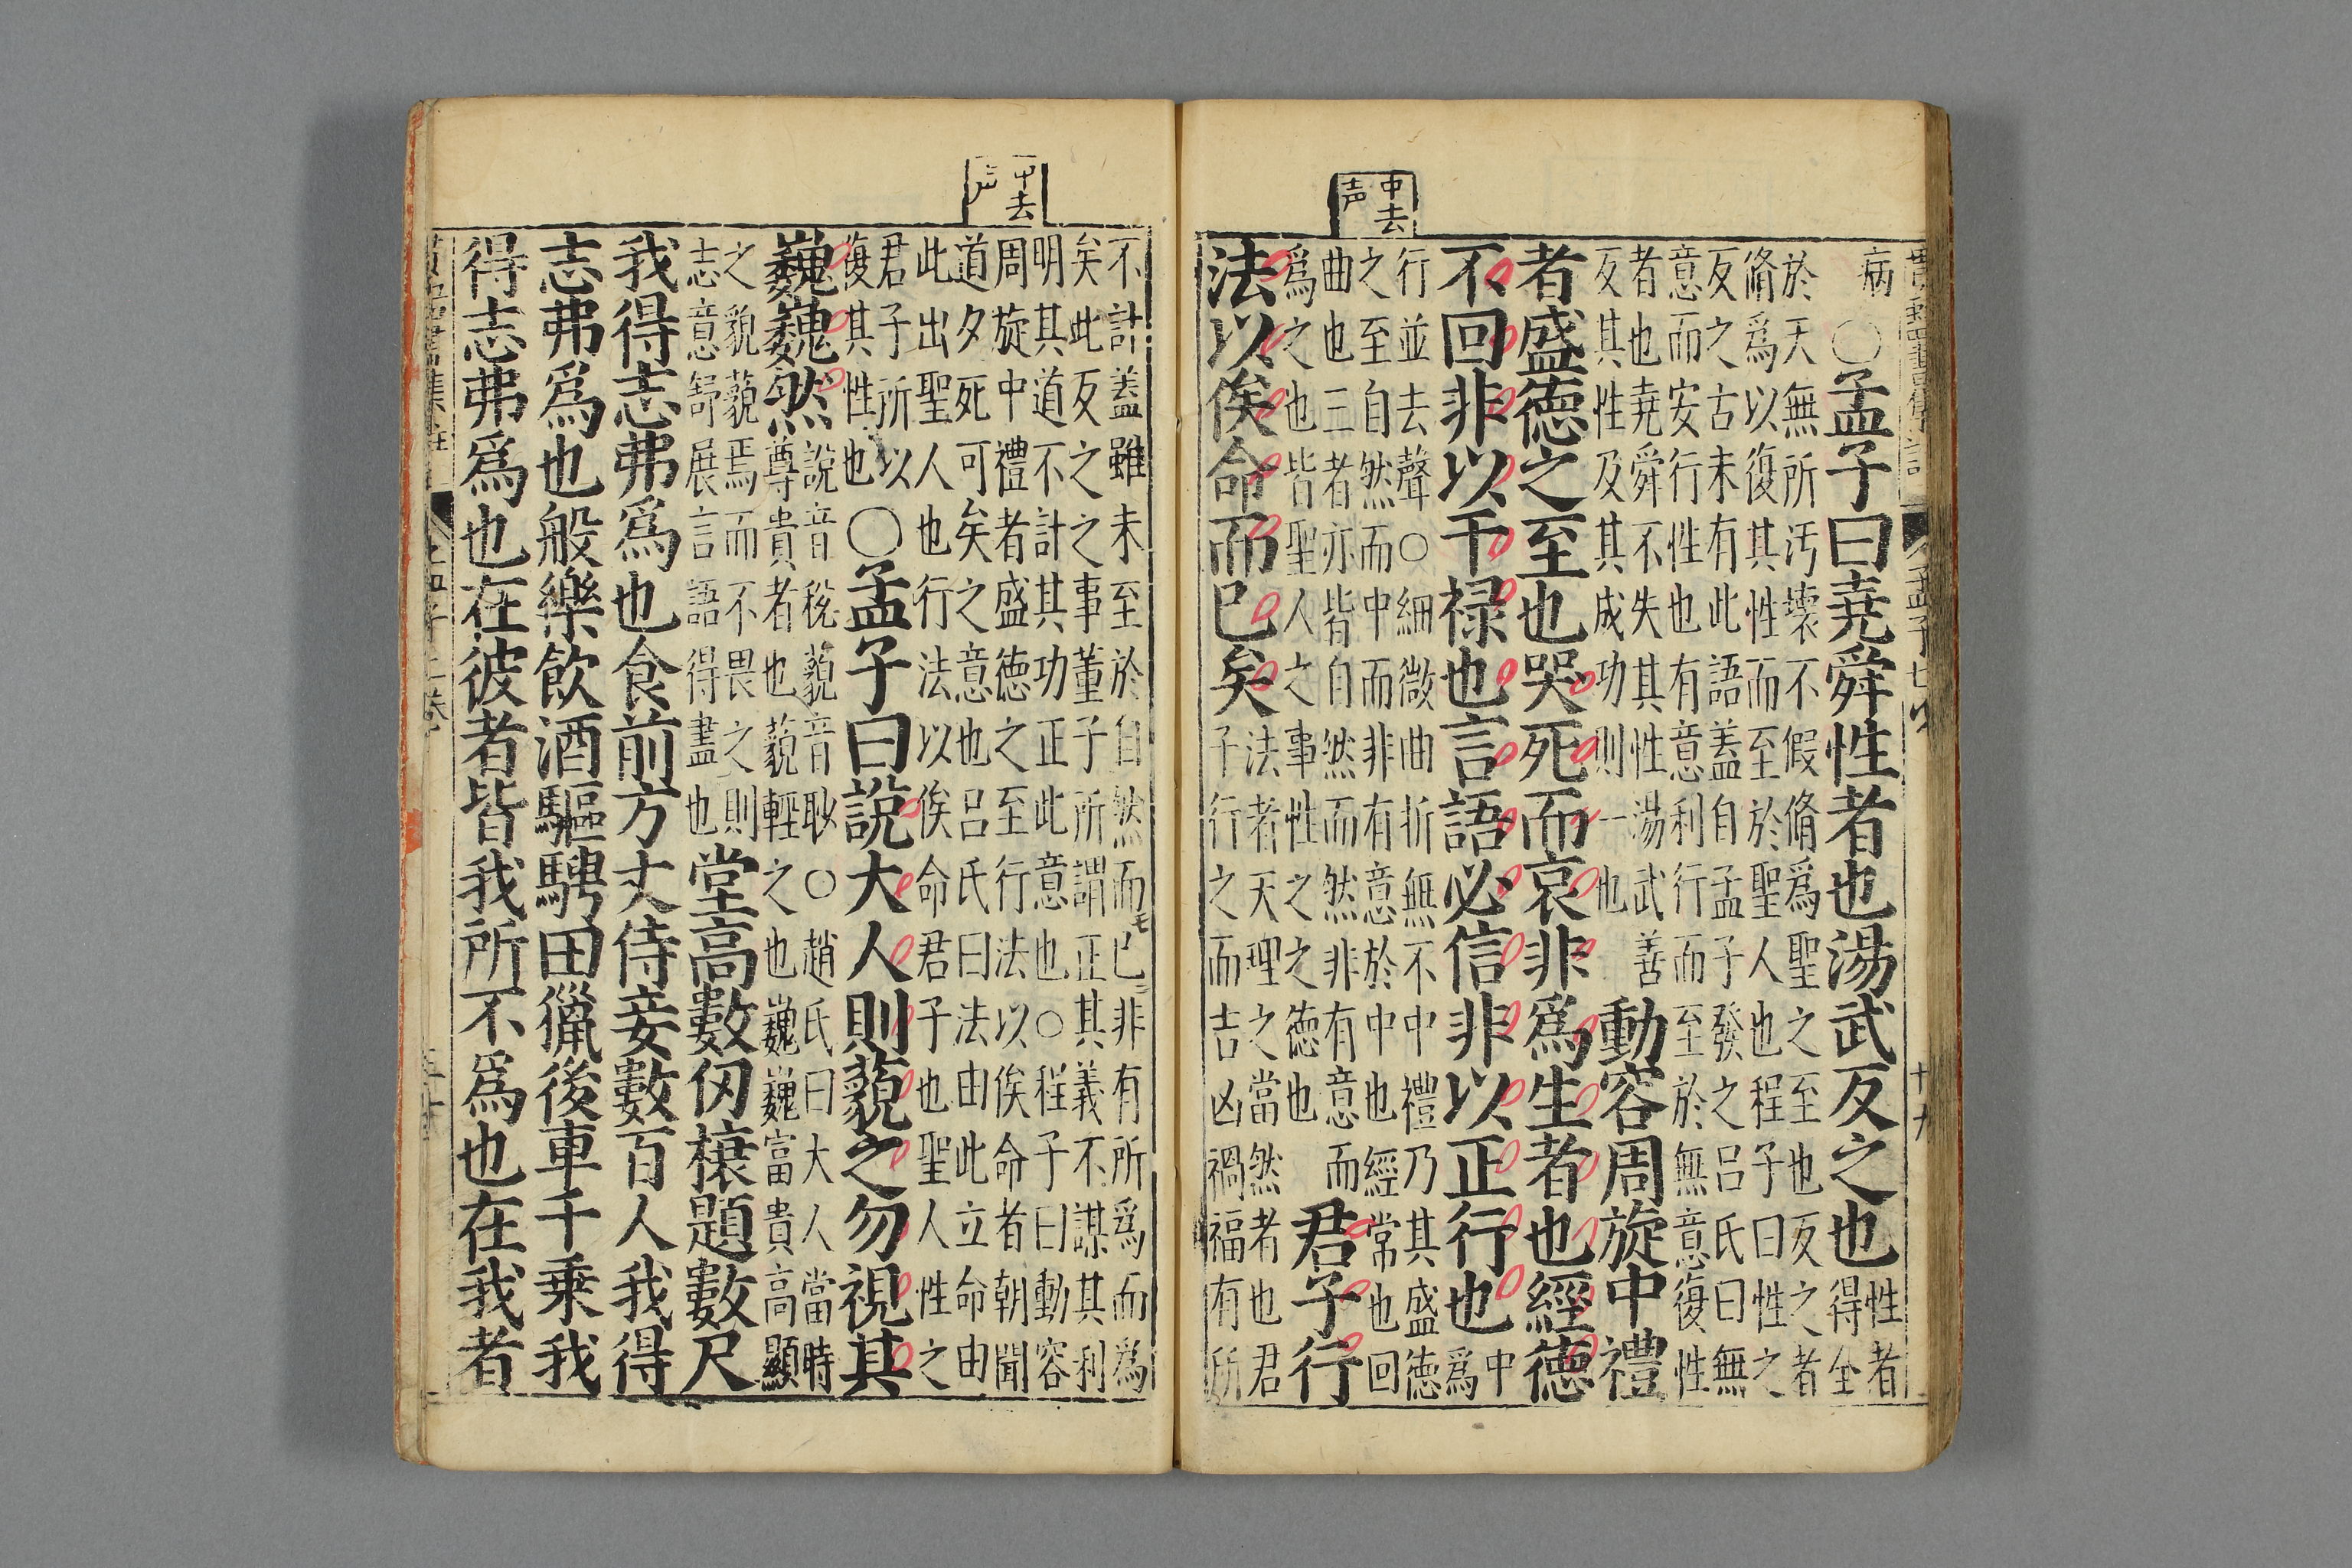 中去
声
病
○孟子曰堯舜性者也湯武反之也
性者
得全
於天無所汚壊不假脩爲聖之至也反之者
脩爲以復其性而至於聖人也程子曰性之
反之古未有此語蓋自孟子發之呂氏曰無
意而安行性也有意利行而至於無意復性
者也堯舜不失其性湯武善
反其性及其成功則一也
動容周旋中禮
者盛德之至也哭死而哀非爲生者也經德
不回非以干禄也言語必信非以正行也
中
爲
行並去聲○細微曲折無不中禮乃其盛德
之至自然而中而非有意於中也經常也回
曲也三者亦皆自然而然非有意而
爲之也皆聖人之事性之之德也
君子行
法以俟命而已矣
法者天理之當然者也君
子行之而吉凶禍福有所
十九
中去
不計蓋雖未至於自然而已非有所爲而為
矣此反之之事董子所謂正其義不謀其利
明其道不計其功正此意也○程子曰動容
周旋中禮者盛德之至行法以俟命者朝聞
道夕死可矣之意也呂氏曰法由此立命由
此出聖人也行法以俟命君子也聖人性之
君子所以
復其性也
○孟子曰說大人則藐之勿視其
巍巍然
說音稅藐音眇○趙氏曰大人當時
尊貴者也藐輕之也巍巍富貴高顯
之貌藐焉而不畏之則
志意舒展言語得盡也
堂高數仞榱題數尺
我得志弗爲也食前方丈侍妾數百人我得
志弗爲也般樂飲酒驅騁田獵後車千乗我
得志弗爲也在彼者皆我所不爲也在我者